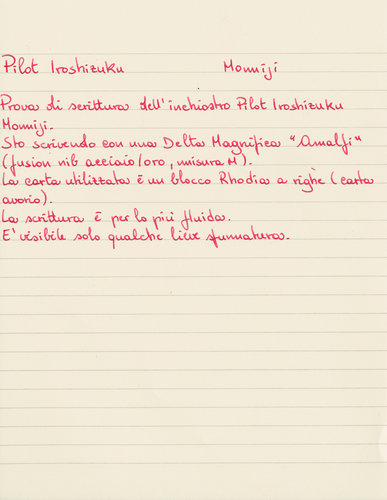 Pilot Iroshizuku Momiji
Prova di scrittura dell'inchiostro Pilot Iroshizuku
Momiji.
Sto scrivendo con una Delta Magnifica "Amalfi"
(fusion nib acciaio/oro, misura M).
La carta utilizzata è un blocco Rhodia a righe (carta
avorio).
La scrittura è per lo più fluida.
E' visibile solo qualche lieve sfumatura.